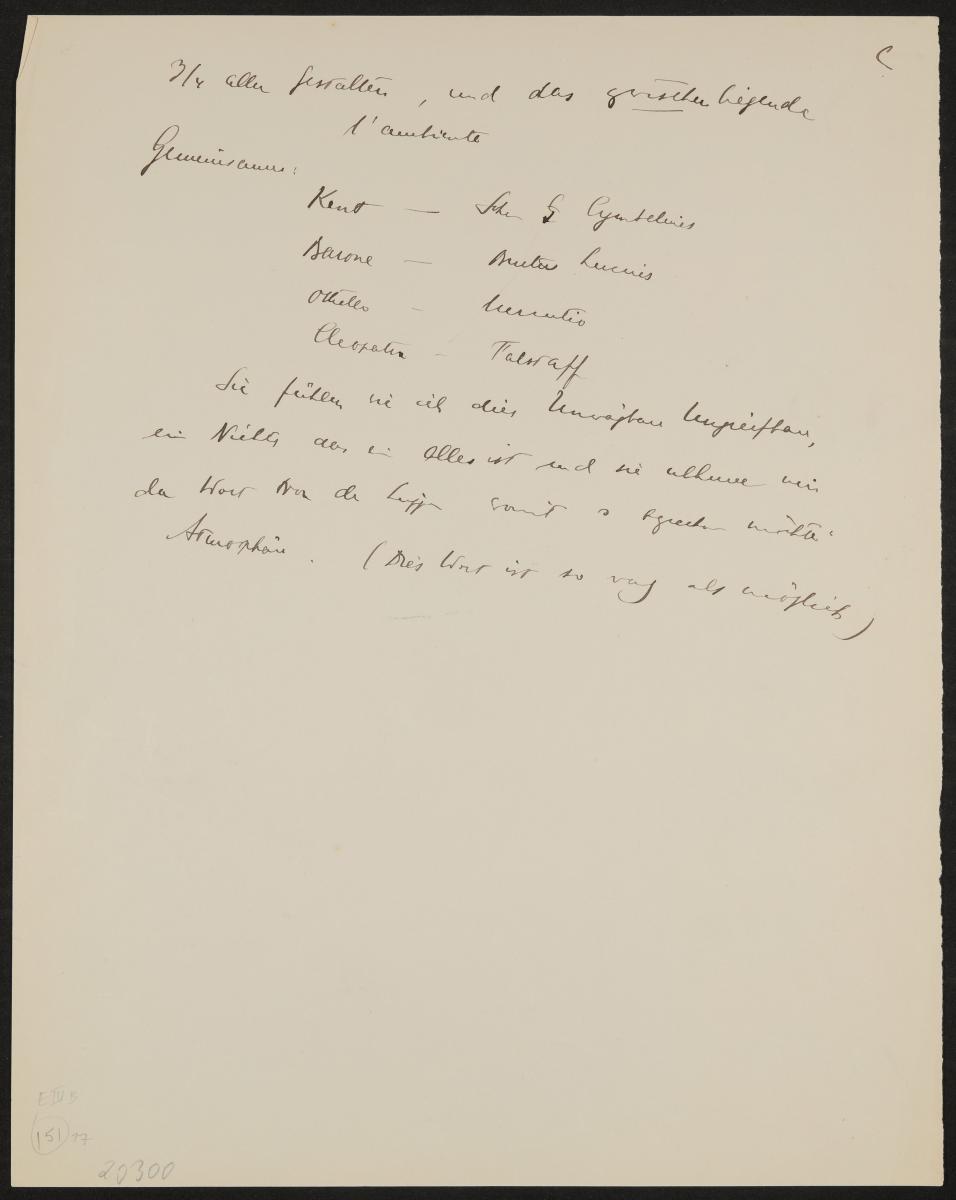 C
3/4 aller Gestalten, und das zwischen liegende
l'ambiente
Gemeinsame:
Kent — Söhne Cymbelines
Barone — Brutus Lucius
Othello – Mercutio
Cleopatra – Falstaff
Sie fühlen wie ich dies Unwägbare Ungreifbare,
ein Nichts das ein Alles ist und sie nehmen mir
das Wort von der Lippe womit es sprechen möchte:
Atmosphäre. (Dies Wort ist so vag als möglich)
E III B
151 17
20300